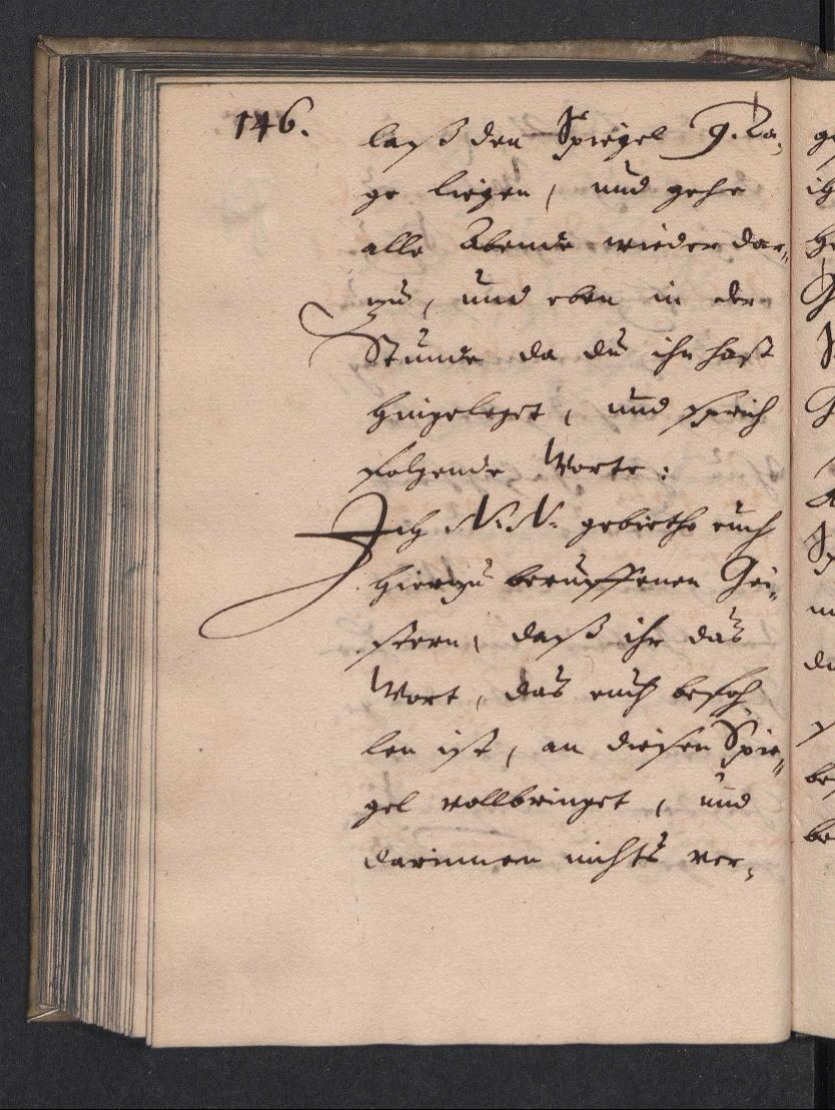 146.
laß den Spiegel 9. Ta,
ge liegen, und gehe
alle Abende wieder dar,,
zu, und eben in der
Stunde da du ihn hast
hingeleget, und sprich
folgende Worte:
Ich N. N. gebiethe euch
hierzu beruffenen Gei,,
stern, daß ihr das
Wort, das euch befoh
len ist, an diesen Spie,,
gel vollbringet, und
darinnen nichts ver,